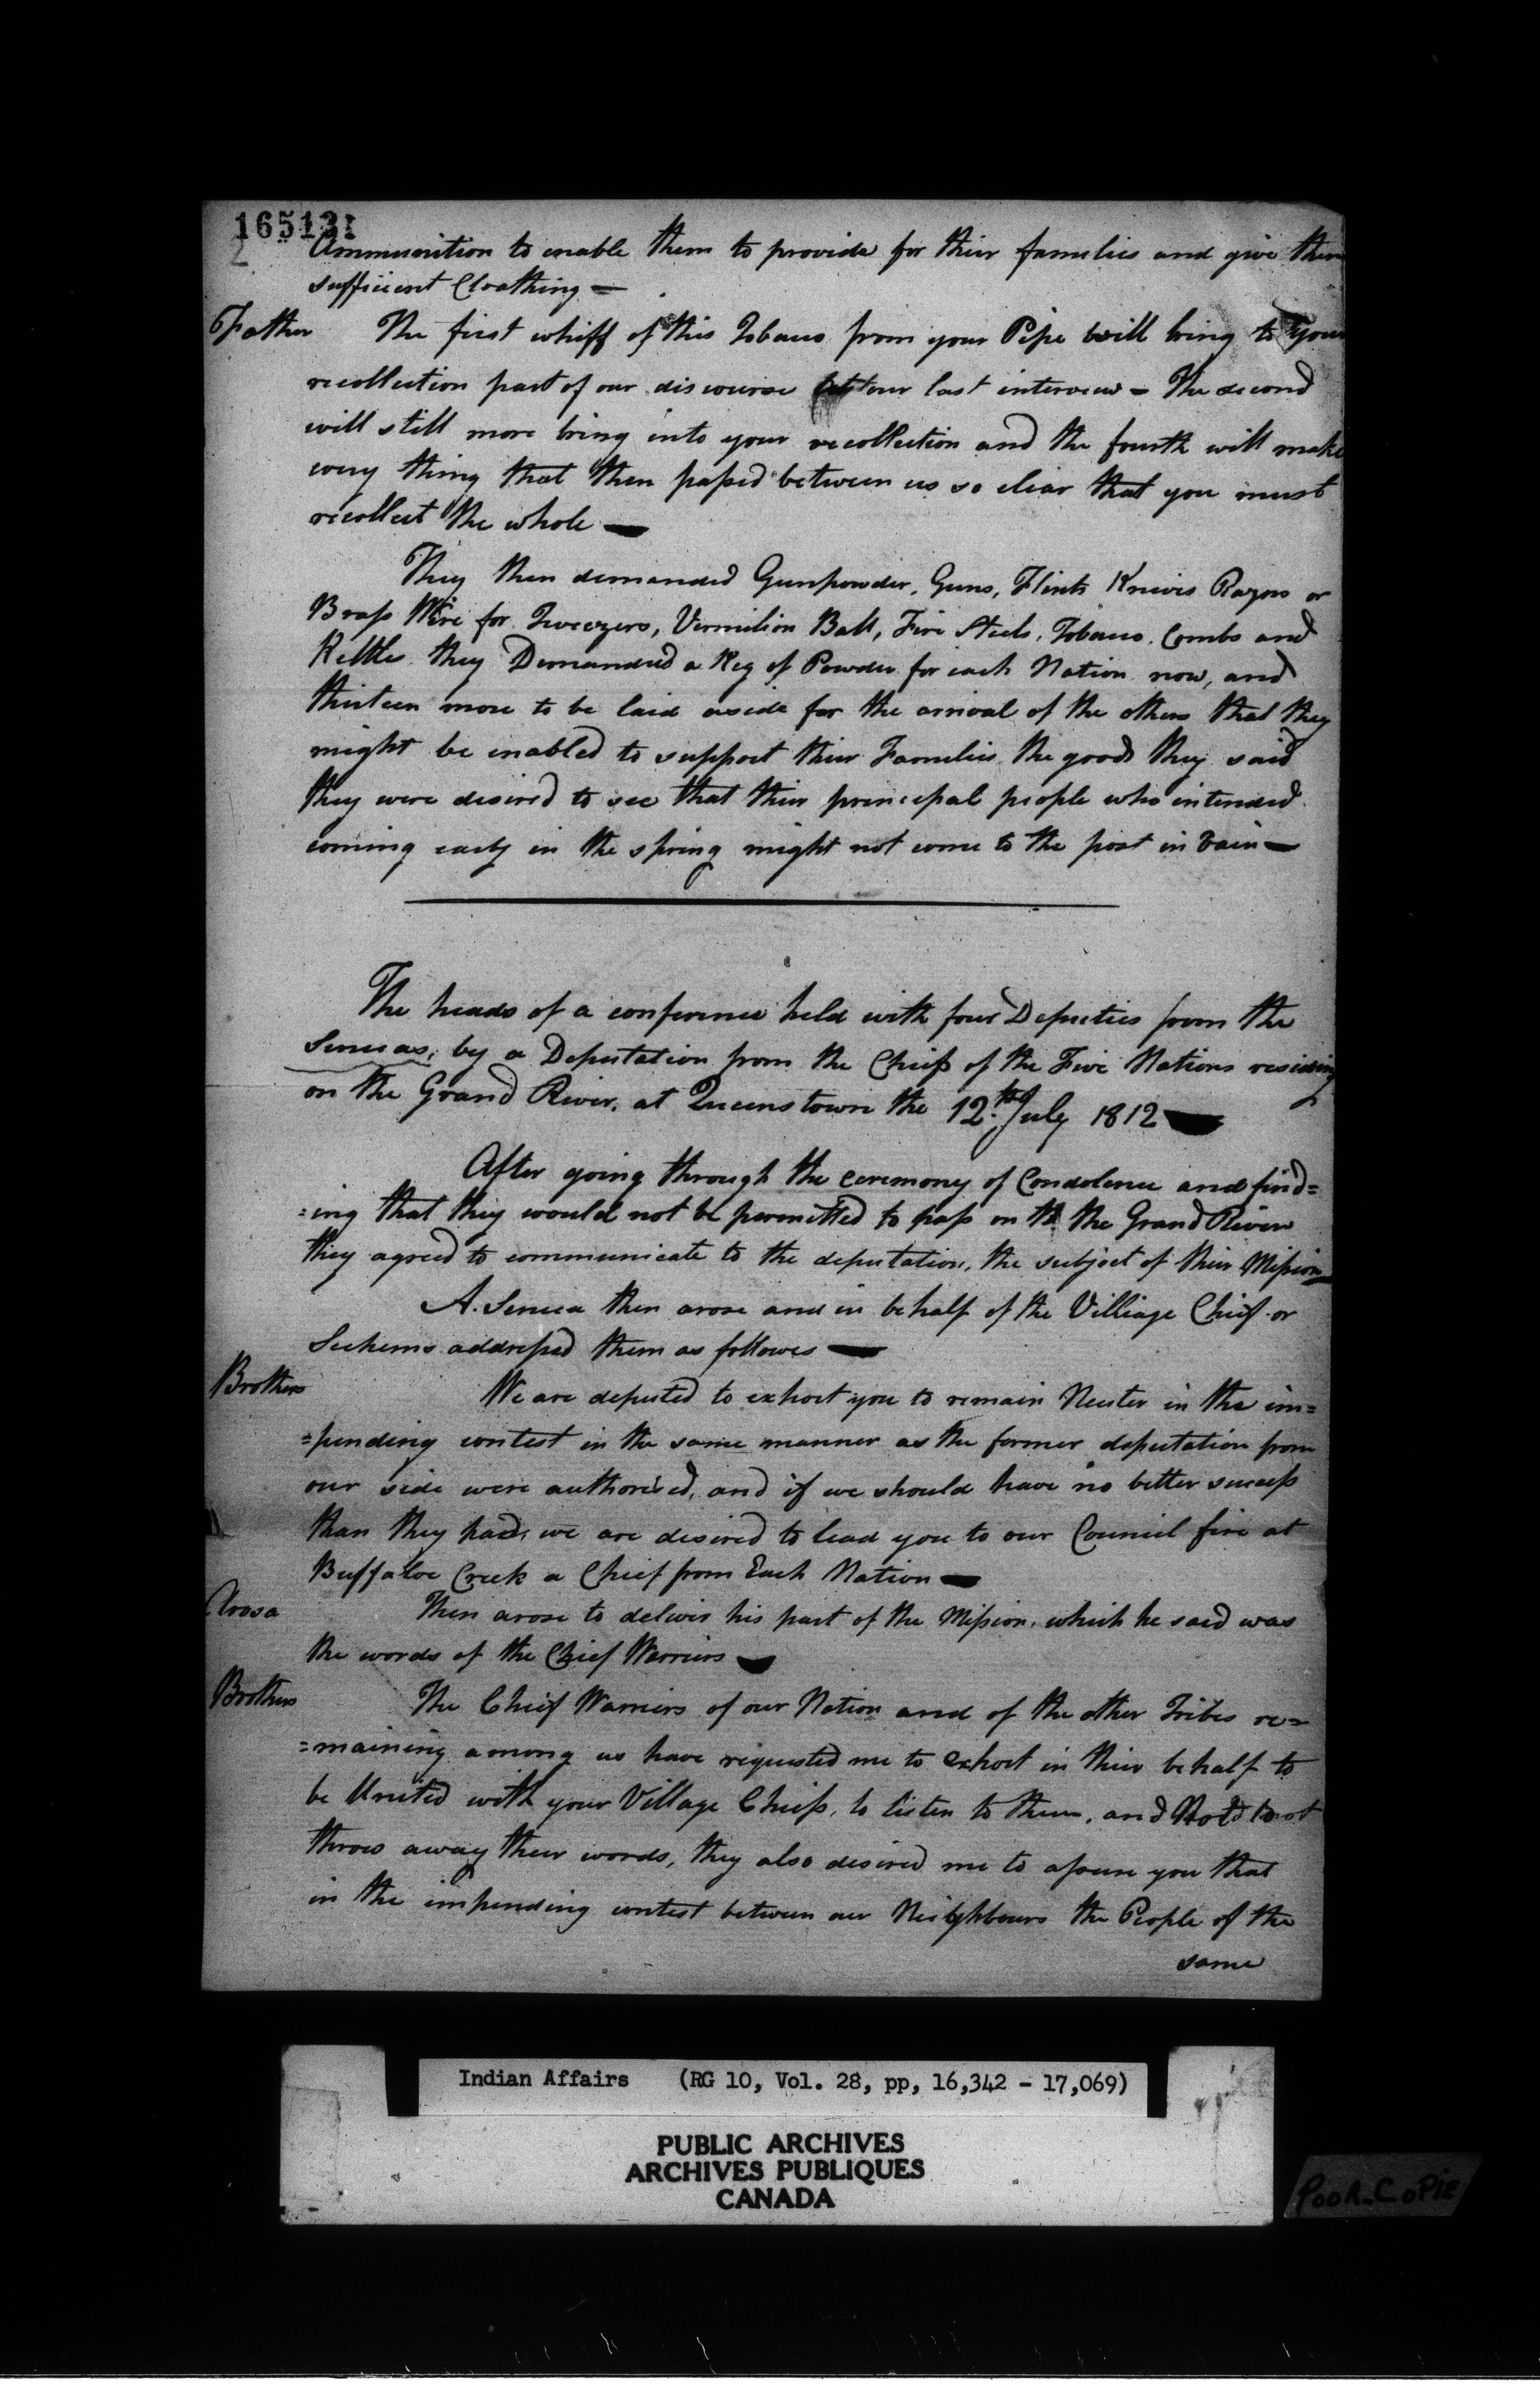 165131
2
Ammunition to enable them to provide for their families and give them
sufficient Cloathing —
Father The first whiff of this Tobacco from your Pipe will bring to your
recollection part of our discourse at our last interview – The second
will still more bring into your recollection and the fourth will make
every thing that then passed between us so clear that you must
recollect the whole —
They then demanded Gunpowder, Guns, Flints Knives Razors or
Brass Wire for Tweezers, Vermilion Ball, Fire Steels, Tobacco. Combs and
Kettles they Demanded a Keg of Powder for each Nation now, and
thirteen more to be laid aside for the arrival of the others that they
might be enabled to support their Families the goods they said
they were desired to see that their principal people who intended
coming early in the spring might not come to the post in vain —
The heads of a conference held with four Deputies from the
Senecas, by a Deputation from the Chiefs of the Five Nations residing
on the Grand River, at Queenstown the 12th July 1812 —
After going through the ceremony of Condolence and find=
=ing that they would not be permitted to pass on to the Grand River
they agreed to communicate to the deputation, the subject of their Mission
A. Seneca then arose and in behalf of the Villiage Chief or
Sechems addressed them as followes —
Brothers We are deputed to exhort you to remain Neuter in the im=
=pending contest in the same manner as the former deputation from
our side were authorised, and if we should have no better success
than they had, we are desired to lead you to our Council fire at
Buffaloe Creek a Chief from Each Nation —
Arosa Then arose to deliver his part of the Mission, which he said was
the words of the Chief Warriors —
Brothers The Chief Warriors of our Nation and of the other Tribes re=
=maining among us have requested me to exhort in their behalf to
be United with your Village Chiefs, to listen to them, and not to
throw away their words, they also desired me to assure you that
in the impending contest between our Neighbours the People of the
same
Indian Affairs (RG 10, Vol. 28, pp, 16,342 - 17,069)
PUBLIC ARCHIVES
ARCHIVES PUBLIQUES
CANADA
POOR COPIE